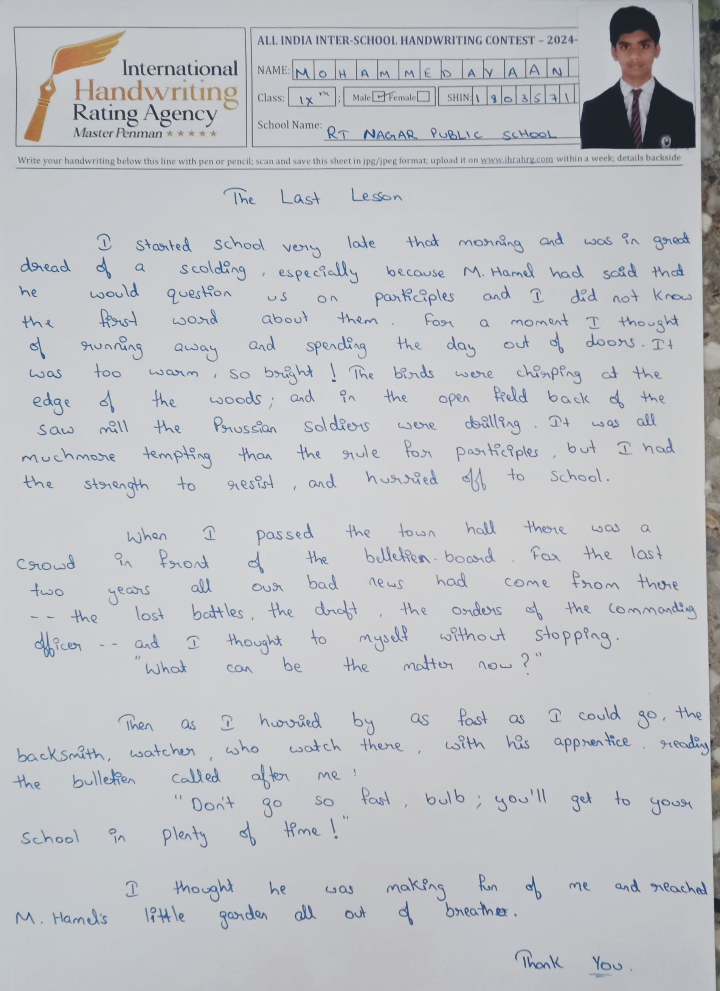 International
Handwriting
Rating Agency
Master Penman ★★★★★
ALL INDIA INTER-SCHOOL HANDWRITING CONTEST – 2024-
NAME: MOHAMMED AYAAN
Class: IXth ; Male ☑ Female ☐ SHIN: 1803571
School Name: RT NAGAR PUBLIC SCHOOL
Write your handwriting below this line with pen or pencil; scan and save this sheet in jpg/jpeg format; upload it on www.ihrahrg.com within a week; details backside
The Last Lesson
I started school very late that morning and was in great
dread of a scolding, especially because M. Hamel had said that
he would question us on participles and I did not know
the first word about them. For a moment I thought
of running away and spending the day out of doors. It
was too warm, so bright! The birds were chirping at the
edge of the woods; and in the open field back of the
saw mill the Prussian soldiers were drilling. It was all
muchmore tempting than the rule for participles, but I had
the strength to resist, and hurried off to school.
When I passed the town hall there was a
crowd in front of the bulletien-board. For the last
two years all our bad news had come from there
-- the lost battles, the draft, the orders of the commanding
officer -- and I thought to myself without stopping.
"What can be the matter now?"
Then as I hurried by as fast as I could go, the
backsmith, watcher, who watch there, with his apprentice, reading
the bulletien called after me!
"Don't go so fast, bulb; you'll get to your
school in plenty of time!"
I thought he was making fun of me and reached
M. Hamel's little garden all out of breather.
Thank You.